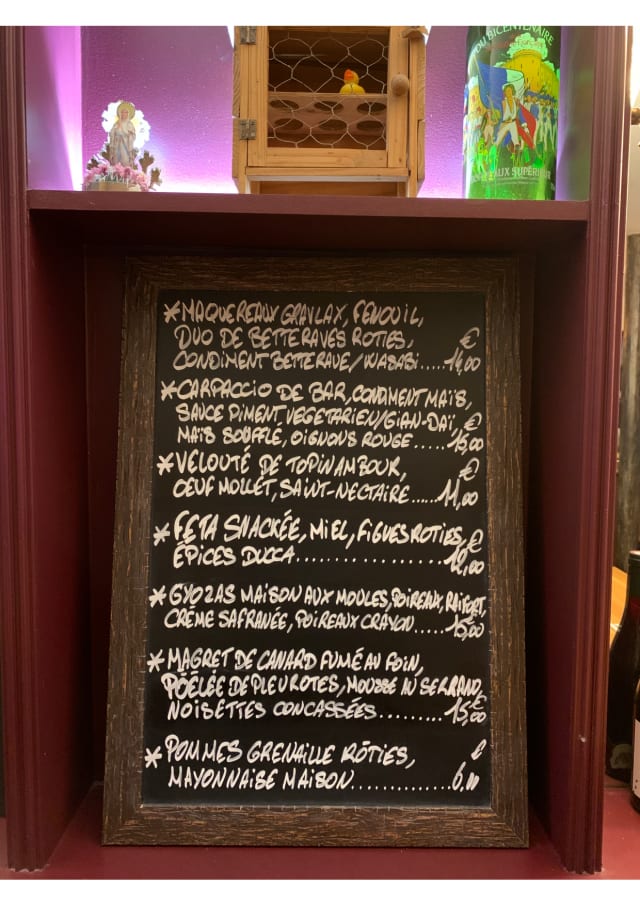 DU BICENTENAIRE
*MAQUEREAUX GRAVLAX, FENOUIL,
DUO DE BETTERAVES ROTIES, €
CONDIMENT BETTERAVE/WASABI.....14,00
*CARPACCIO DE BAR, CONDIMENT MAÏS,
SAUCE PIMENT VEGETARIEN/GIAN-DAÏ, €
MAÏS SOUFFLÉ, OIGNONS ROUGE.....15,00
*VELOUTÉ DE TOPINAMBOUR, €
OEUF MOLLET, SAINT-NECTAIRE......11,00
*FETA SNACKÉE, MIEL, FIGUES ROTIES, €
ÉPICES DUCCA..................12,00
*GYOZAS MAISON AUX MOULES, POIREAUX, RAIFORT,
CRÈME SAFRANÉE, POIREAUX CRAYON.....15,00
*MAGRET DE CANARD FUMÉ AU FOIN,
PÖÊLÉE DE PLEUROTES, MOUSSE SERRANO, €
NOISETTES CONCASSÉES.........15,00
*POMMES GRENAILLE RÔTIES, €
MAYONNAISE MAISON..............6,